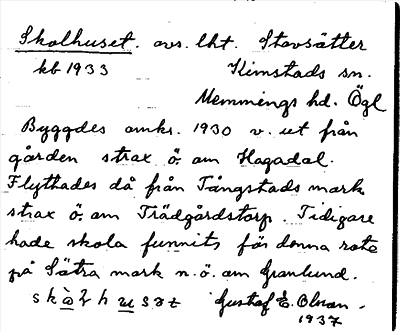 Skolhuset. avs. lht. Stavsätter
kb 1933 Kimstads sn.
Memmings hd. Ögl
Byggdes omkr. 1930 v. ut från
gården strax ö. om Hagadal.
Flyttades då från Tångstads mark
strax ö. om Trädgårdstorp. Tidigare
hade skola funnits för denna rote
på Sätra mark n.ö. om Granlund.
Gustaf E. Olsson.
1937